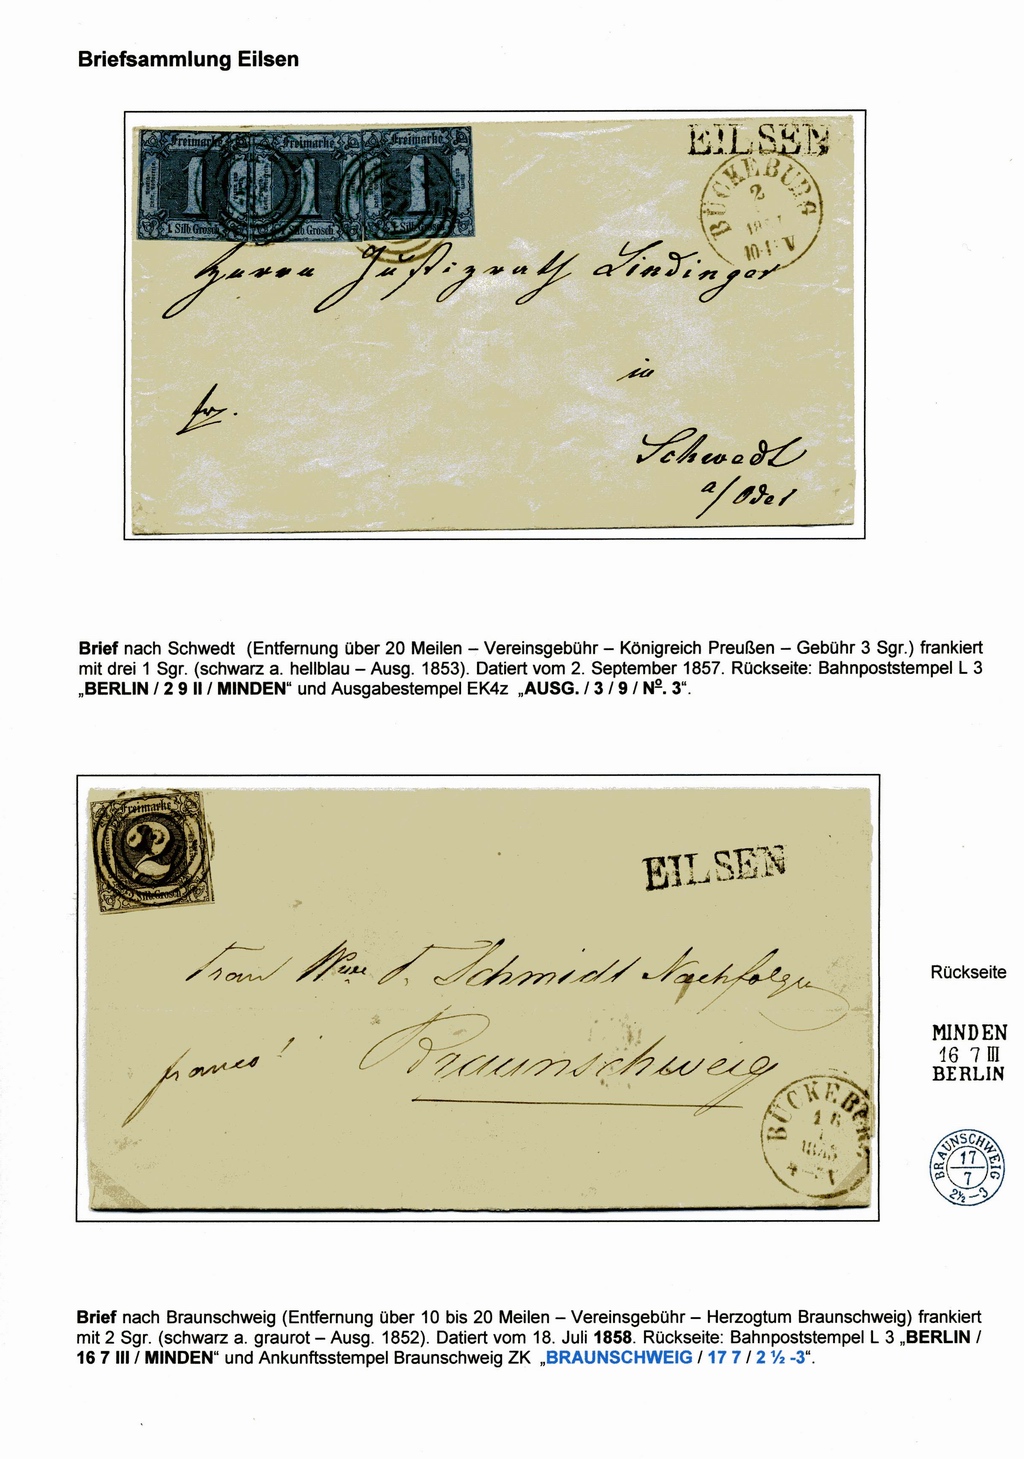 Briefsammlung Eilsen
Freimarke Freimarke Freimarke
1 1 1
1. Silb. Grosch Silb Grosch Silb
EILSEN
BÜCKEBURG
2
Herrn Justizrath Lindinger
in
fr.
Schwedt
a/Oder
Brief nach Schwedt (Entfernung über 20 Meilen – Vereinsgebühr – Königreich Preußen – Gebühr 3 Sgr.) frankiert
mit drei 1 Sgr. (schwarz a. hellblau – Ausg. 1853). Datiert vom 2. September 1857. Rückseite: Bahnpoststempel L 3
„BERLIN / 2 9 II / MINDEN“ und Ausgabestempel EK4z „AUSG. / 3 / 9 / Nº. 3“.
Freimarke
2
Silb. Grosch
EILSEN
Frau Wwe J. Schmidt Nachfolger
franco!
Braunschweig
BÜCKEBURG
16
Rückseite
MINDEN
16 7 III
BERLIN
BRAUNSCHWEIG
17
7
2½-3
Brief nach Braunschweig (Entfernung über 10 bis 20 Meilen – Vereinsgebühr – Herzogtum Braunschweig) frankiert
mit 2 Sgr. (schwarz a. graurot – Ausg. 1852). Datiert vom 18. Juli 1858. Rückseite: Bahnpoststempel L 3 „BERLIN /
16 7 III / MINDEN“ und Ankunftsstempel Braunschweig ZK „BRAUNSCHWEIG / 17 7 / 2 ½ -3“.